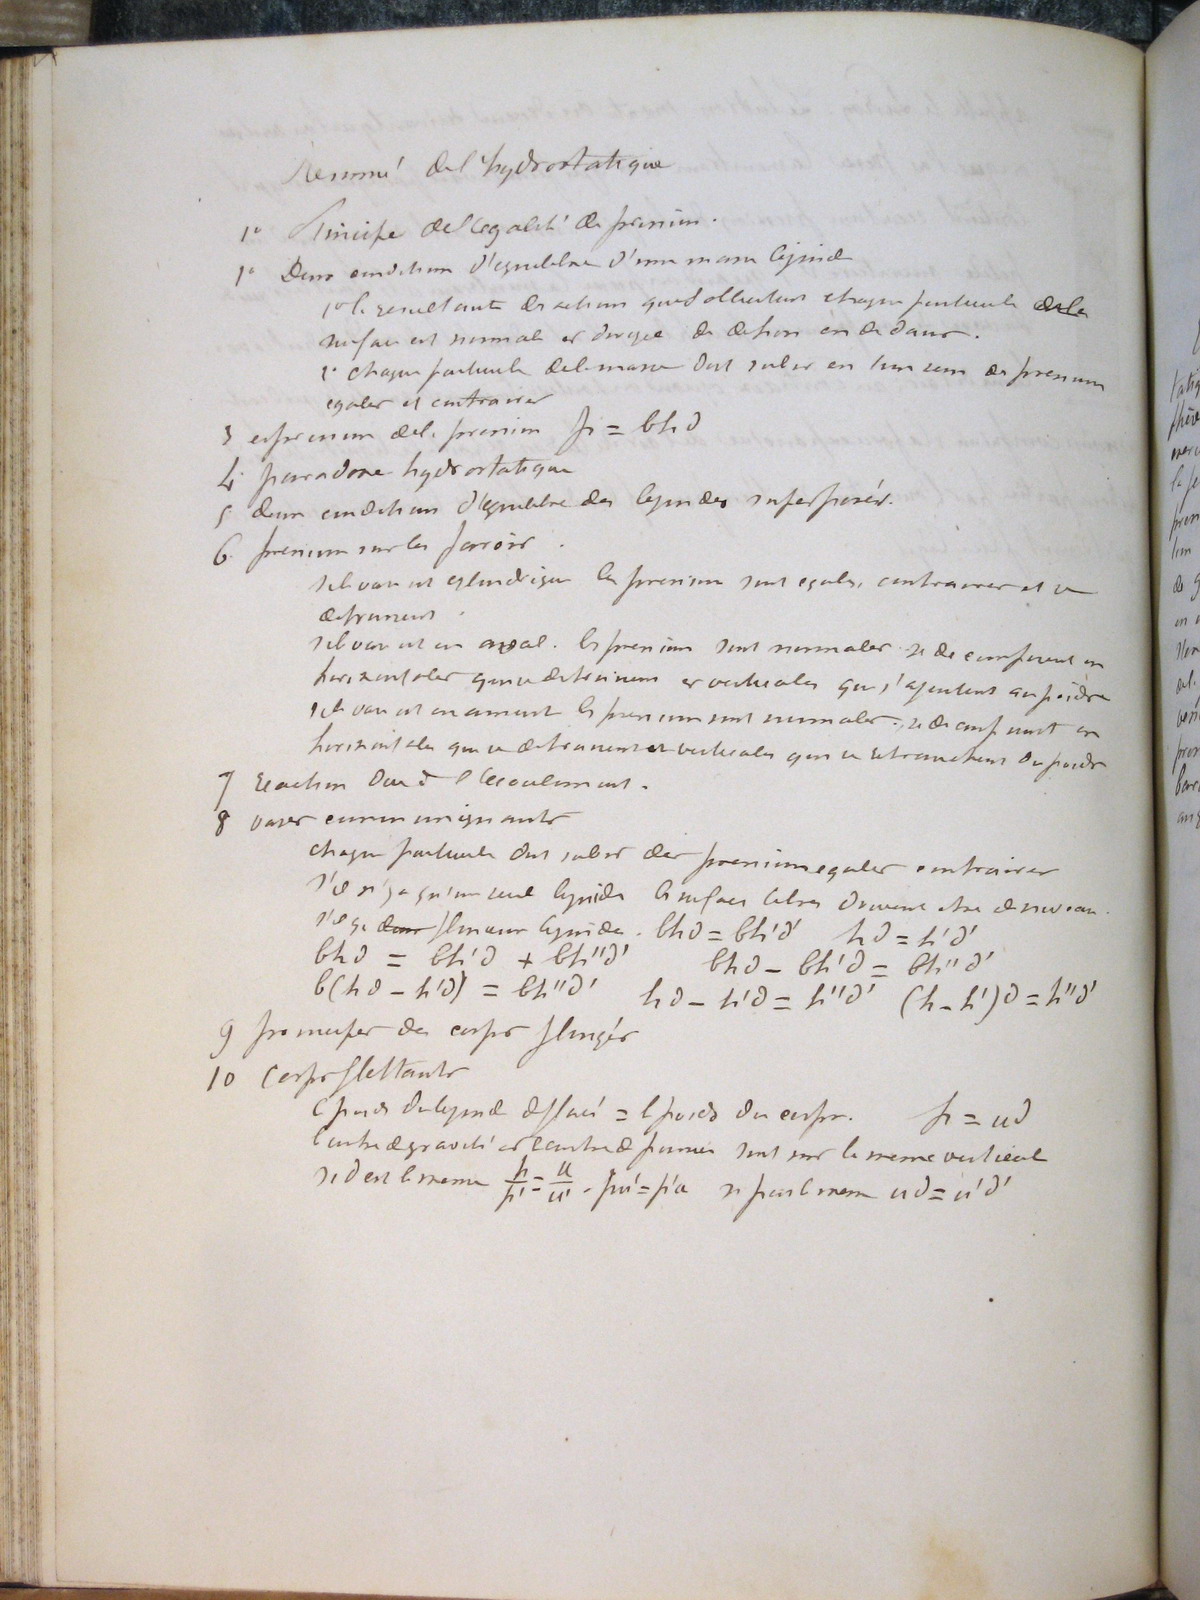 Resumé de l'hydrostatique
1° Principe de l'egalité de pression.
1° Deux condition d'equilibre d'une masse liquide
1° la resultante des actions qui sollicitent chaque particule de la
surface est normale et dirigée de dehors en dedans.
2° chaque particule de la masse doit subir en tous sens des pressions
egales et contraires
3 expression de la pression p = bhd
4 paradoxe hydrostatique
5 deux conditions d'équilibre des liquides superposés.
6 pression sur les parois.
si le vase est cylindrique les pressions sont egales, contraires et se
detruisent.
si le vase est en aval. les pressions sont normales. se decomposent en
horizontales qui se detruisent et verticales qui s'ajoutent au poids
si le vase est en amont les pressions sont normales, se decomposent en
horizontales qui se detruisent et verticales qui se retranchent du poids
7 reaction due à l'ecoulement.
8 vases communiquants
chaque particule doit subir des pressions egales contraires
s'il n'y a qu'un seul liquide les surfaces libres doivent etre de niveau.
s'il y a deux plusieurs liquides. bhd = bh'd' hd = h'd'
bhd = bh'd + bh''d' bhd - bh'd = bh''d'
b(hd - h'd) = bh''d' hd - h'd = h''d' (h - h')d = h''d'
9 principes des corps plongés
10 Corps flottants
le poids du liquide deplacé = le poids du corps. p = ud
le centre de gravité et centre de poussée sont sur la meme verticale
si d est le meme p/p' = u/u' . pu' = p'u si p est le meme ud = u'd'